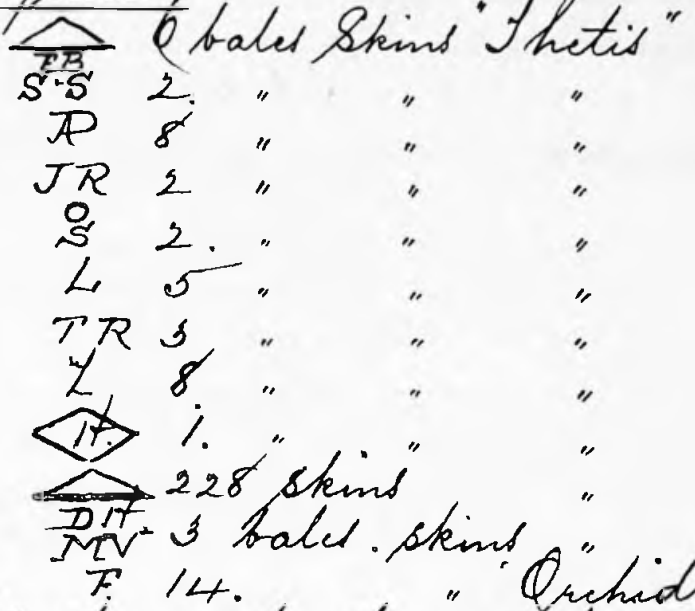 6 bales Skins "Thetis"
FB
S.S 2. " " "
AP 8 " " "
JR 2 " " "
O
S 2. " " "
L 5 " " "
TR 3 " " "
Z 8 " " "
H. 1. " " "
228 skins "
DH
MV 3 bales. skins "
F. 14. " "Orchid